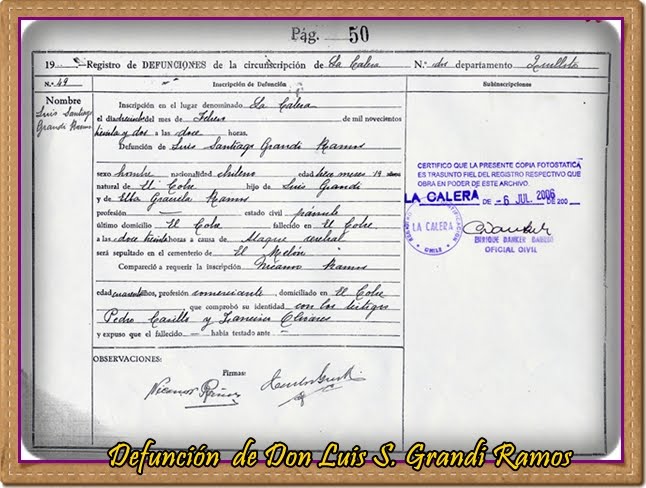 Pág. 50
19 Registro de DEFUNCIONES de la circunscripción de La Calera N.º dos departamento Quillota
N.º 49 Inscripción de Defunción Subinscripciones
Nombre
Luis Santiago
Grandi Ramos
Inscripción en el lugar denominado La Calera
el día del mes de Febrero de mil novecientos
treinta y dos a las doce horas.
Defunción de Luis Santiago Grandi Ramos
sexo hombre nacionalidad chileno edad trece meses 19
natural de El Cobre hijo de Luis Grandi
y de Elba Graciela Ramos
profesión — estado civil párvulo
último domicilio El Cobre fallecido en El Cobre
a las doce treinta horas a causa de Ataque cerebral
será sepultado en el cementerio de El Melón
Compareció a requerir la inscripción Nicanor Ramos
edad años, profesión comerciante, domiciliado en El Cobre
que comprobó su identidad con los testigos
Pedro Casillo y Francisco Olivares
y expuso que el fallecido — había testado ante —
OBSERVACIONES:
Firmas:
Nicanor
CERTIFICO QUE LA PRESENTE COPIA FOTOSTATICA
ES TRASUNTO FIEL DEL REGISTRO RESPECTIVO QUE
OBRA EN PODER DE ESTE ARCHIVO.
LA CALERA DE - 6 JUL. 2006 DE 200
LA CALERA
CHILE
ENRIQUE
OFICIAL CIVIL
Defunción de Don Luis S. Grandi Ramos